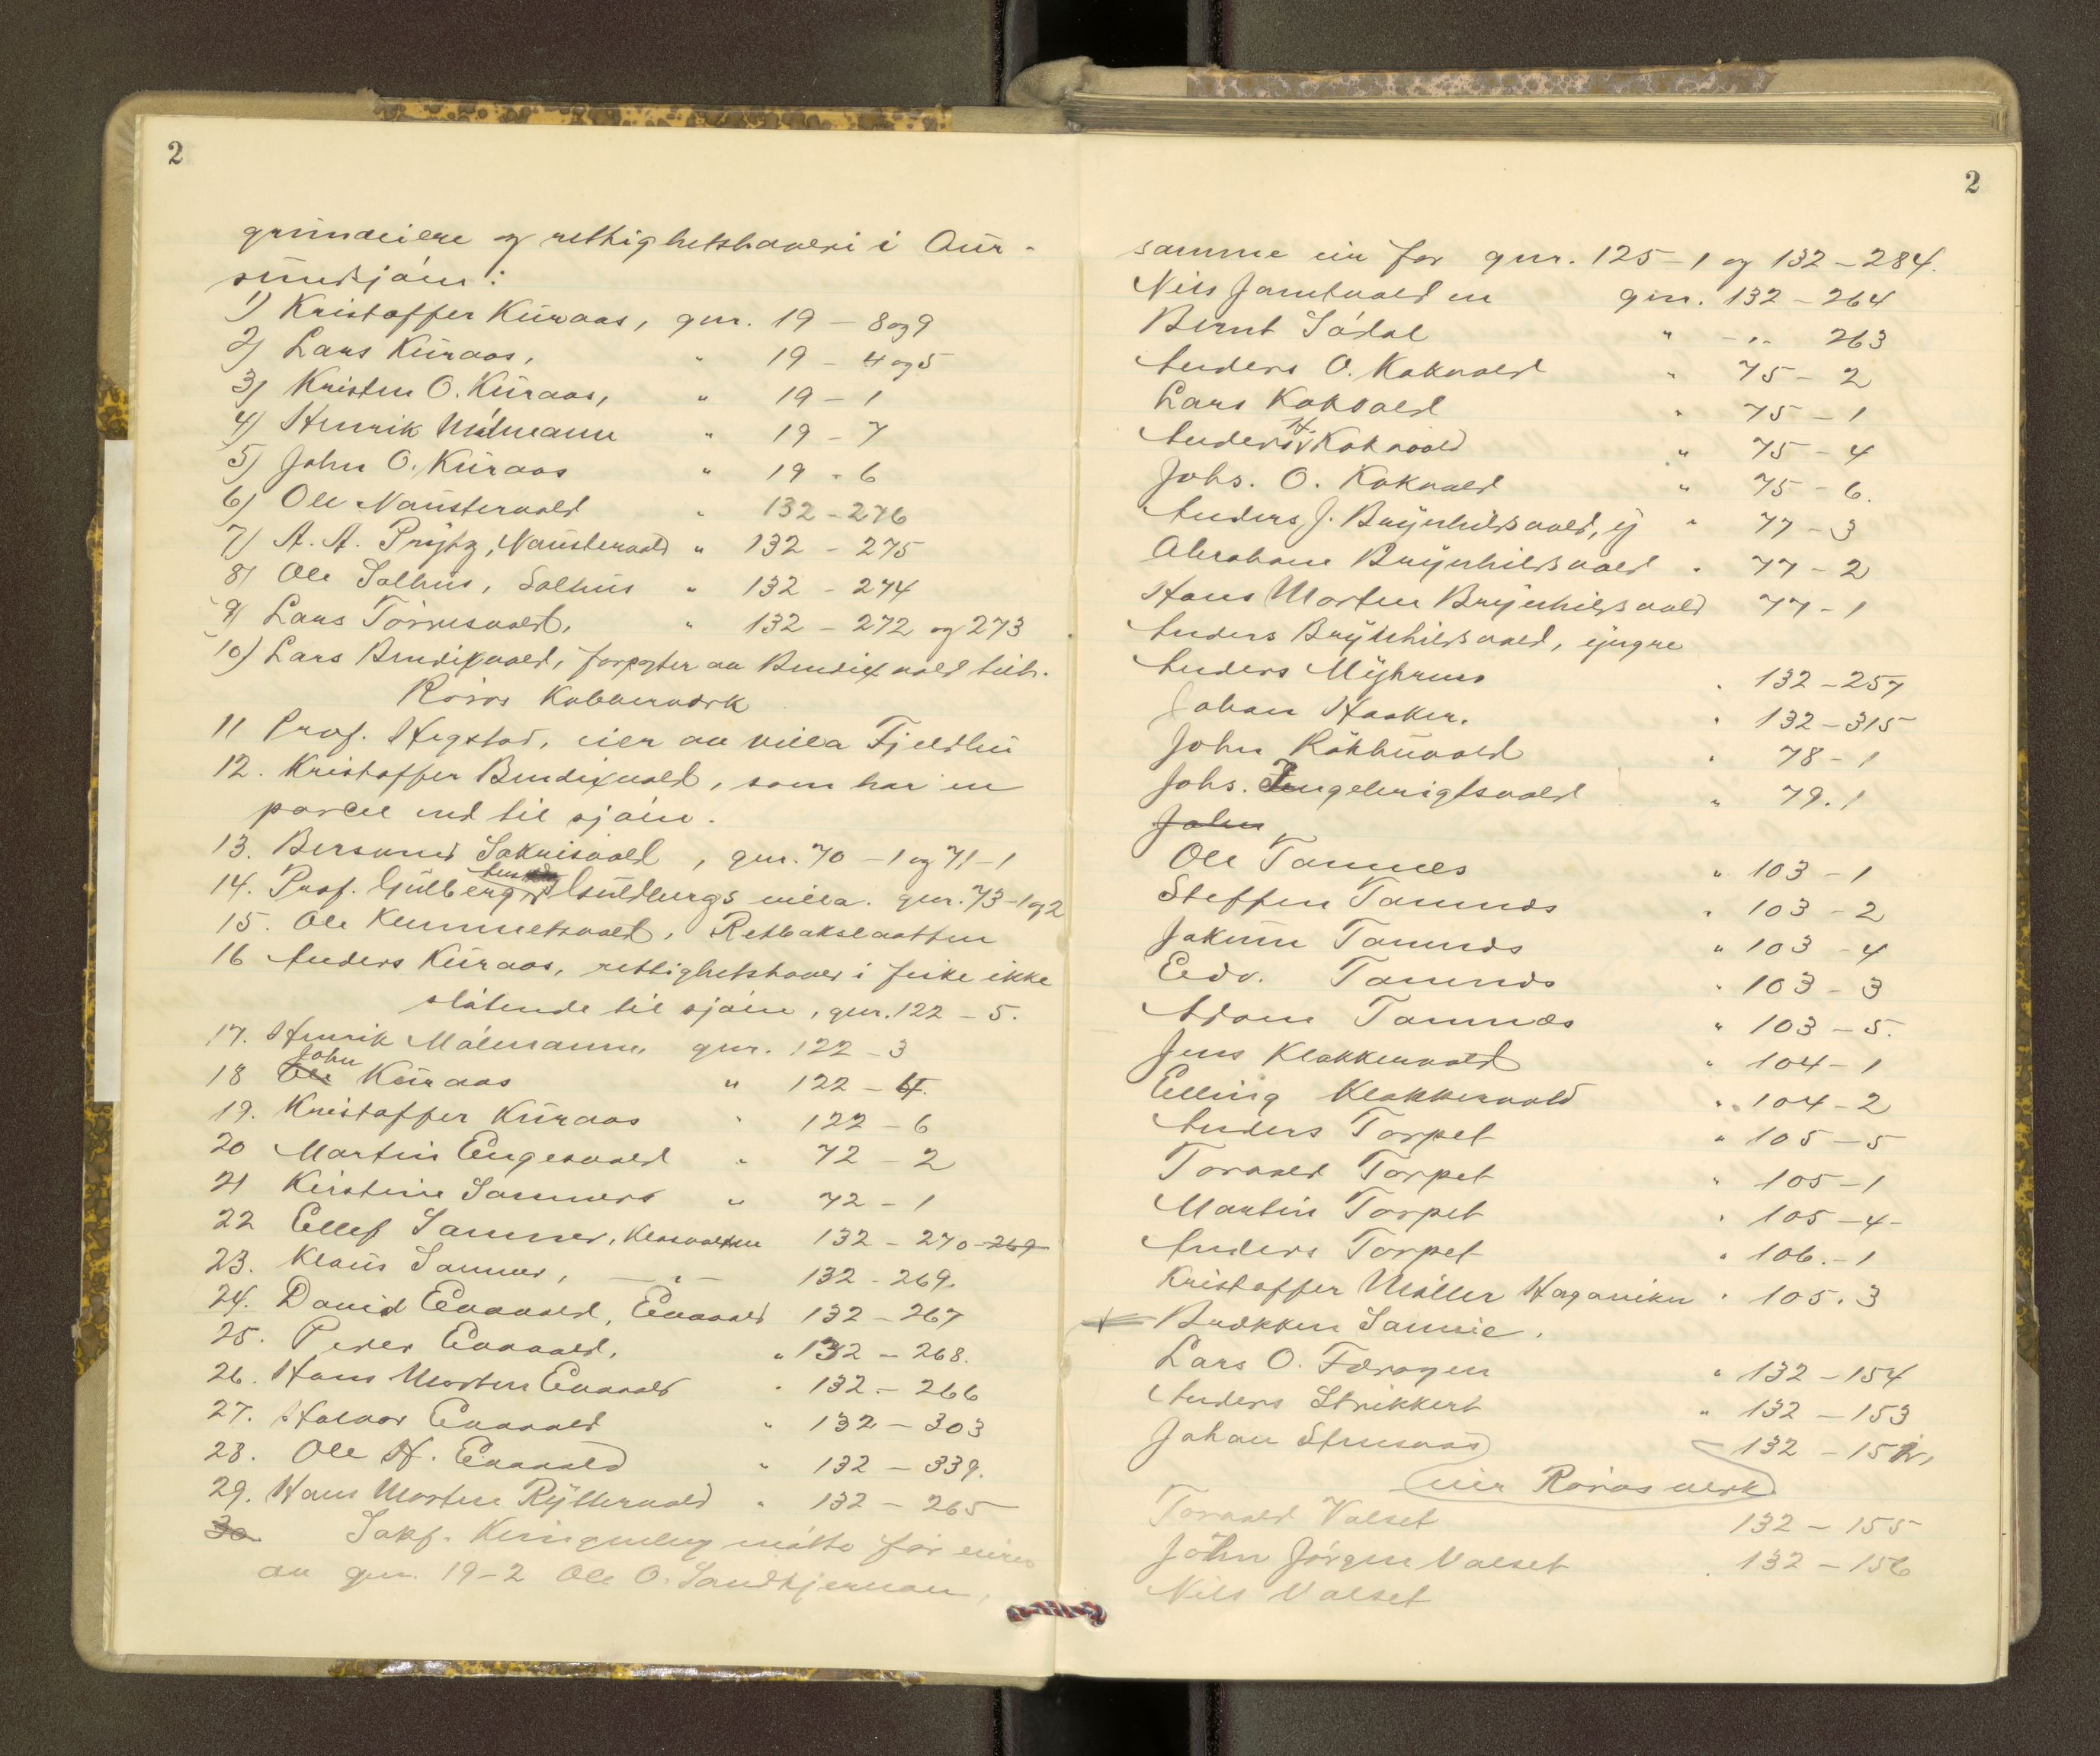 2
grundeiere og rettighetshavere i Aur-
sundsjøen:
1) Kristoffer Kuraas, gnr. 19 - 8 og 9
2) Lars Kuraas, " 19 - 4 og 5
3) Kristen O. Kuraas, " 19 - 1
4) Henrik Målmann " 19 - 7
5) John O. Kuraas " 19 - 6
6) Ole Naustervold " 132 - 276
7) A. A. Prytz, Naustervold " 132 - 275
8) Ole Solhus, Solhus " 132 - 274
9) Lars Tørresvold, " 132 - 272 og 273
10) Lars Bendixvold, forpagter av Bendixvold tilh.
Røros Kobberverk
11 Prof. Hegstad, eier av villa Fjeldhu
12. Kristoffer Bendixvold, som har en
parcel ned til sjøen.
13. Bersvend Sakrisvold, gnr. 70 - 1 og 71 - 1
14. Prof. Guldbergs villa. gnr. 73 - 1 og 2
15. Ole Klemmetsvold, Retbakslaatten
16 Anders Kuraas, rettighetshaver i fiske ikke
støtende til sjøen, gnr. 122 - 5.
17. Henrik Målmann, gnr. 122 - 3
18 Ole John Kuraas " 122 - 4.
19. Kristoffer Kuraas " 122 - 6
20 Martin Engesvold " 72 - 2
21 Kirstine Sammers " 72 - 1
22 Ellef Sammer, Klasvolden 132 - 270 - 269
23. Klaus Sammer, - " - 132 - 269.
24. David Evavold, Evavold 132 - 267
25. Peder Evavold, " 132 - 268.
26. Hans Morten Evavold " 132 - 266
27. Halvor Evavold " 132 - 303
28. Ole H. Evavold " 132 - 339.
29. Hans Morten Ryttervold " 132 - 265
30 Sakf. Klingenberg møtte for eieren
av gnr. 19-2 Ole O. Sandkjernan,
2
samme eier for gnr. 125 - 1 og 132 - 284.
Nils Jamtvolden gnr. 132 - 264
Bernt Sødal " - " - 263
Anders O. Kokvold " 75 - 2
Lars Kokvold " 75 - 1
Anders H. Kokvold " 75 - 4
Johs. O. Kokvold " 75 - 6.
Anders J. Brynhildsvold, ej " 77 - 3
Abraham Brynhildsvold " 77 - 2
Hans Morten Brynhildsvold 77 - 1
Anders Brynhildsvold, yngre
Anders Myhrens " 132 - 257
Johan Haaker. " 132 - 315
John Kokhuvold " 78 - 1
Johs. Ingebrigtsvold " 79. 1
John
Ole Tamnes " 103 - 1
Steffen Tamnæs " 103 - 2
Jakum Tamnæs " 103 - 4
Edv. Tamnæs " 103 - 3
Adam Tamnæs " 103 - 5.
Jens Klokkervold " 104 - 1
Elling Klokkervold " 104 - 2
Anders Torpet " 105 - 5
Torvald Torpet " 105 - 1
Martin Torpet " 105 - 4 -
Anders Torpet " 106. - 1
Kristoffer Møller Hagaviken " 105. 3
Brækken Samie.
Lars O. Færagen " 132 - 154
Anders Strikkert " 132 - 153
Johan Stensaas 132 - 152,
eier Røros verk
Torvald Valset 132 - 155
John Jørgen Valset " 132 - 156
Nils Valset